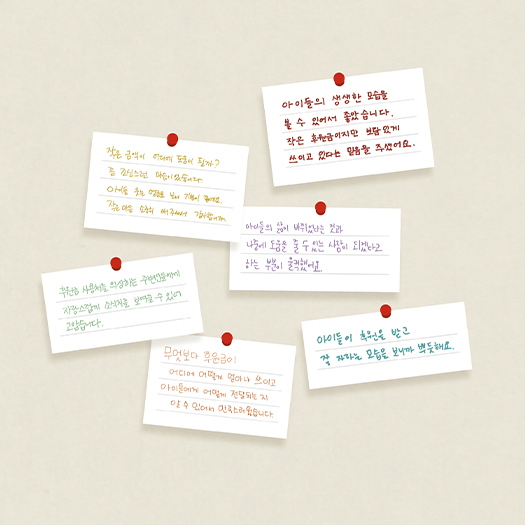 아이들의 생생한 모습을
볼 수 있어서 좋았습니다.
작은 후원금이지만 보람있게
쓰이고 있다는 믿음을 주셨어요.
작은 금액이 어디에 도움이 될까?
좀 조심스런 마음이었습니다.
아이들 웃는 영상도 보니 기분이 좋네요.
작은 마음 소중히 써주셔서 감사합니다.
아이들의 삶이 바뀌었다는 것과
나중에 도움을 줄 수 있는 사람이 되겠다고
하는 부분이 울컥했어요.
후원금 사용처를 의심하는 주변인들에게
자랑스럽게 소식지를 보여줄 수 있어
고맙습니다.
아이들이 후원을 받고
잘 자라는 모습을 보니까 뿌듯해요.
무엇보다 후원금이
어디에 어떻게 얼마나 쓰이고
아이들에게 어떻게 전달되는 지
알 수 있어서 만족스러웠습니다.